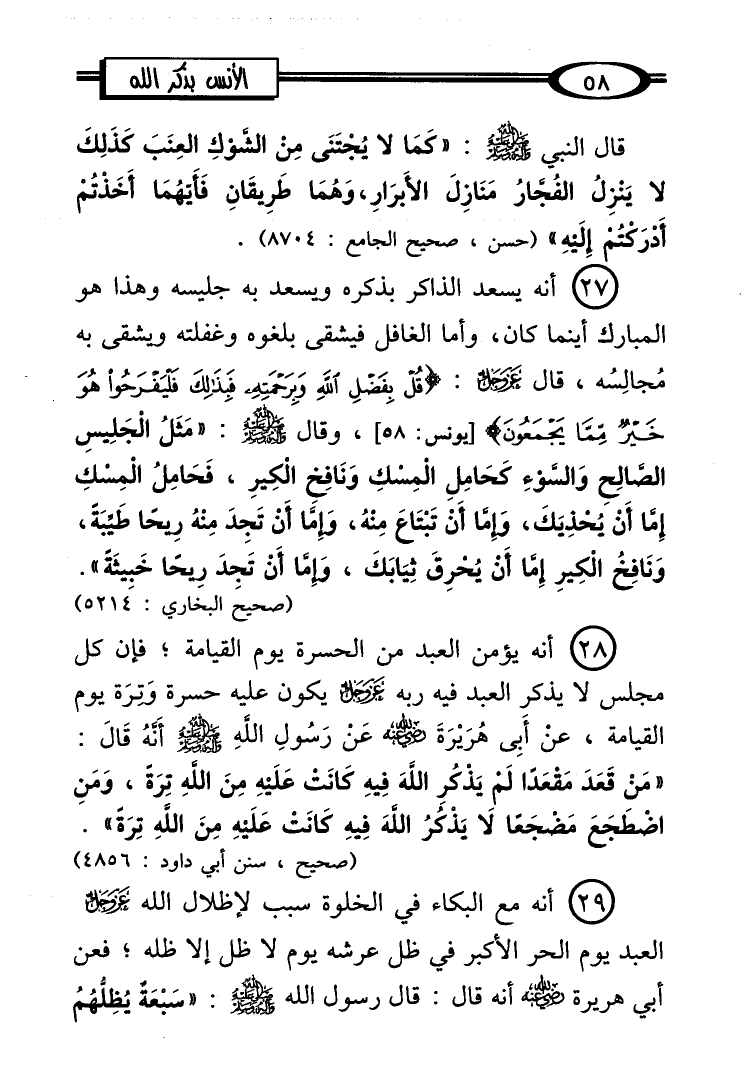 ٥٨ الأنس بذكر الله
قال النبي ﷺ : «كَمَا لا يُجْتَنَى مِنْ الشَّوْكِ العِنَبَ كَذَلِكَ
لا يَنْزِلُ الفُجَّارُ مَنَازِلَ الأَبرَارِ،وَهُمَا طَرِيقَانِ فَأَيّهُمَا أَخَذْتُمْ
أَدْرَكْتُمْ إِلَيْهِ» (حسن ، صحيح الجامع : ٨٧٠٤) .
٢٧ أنه يسعد الذاكر بذكره ويسعد به جليسه وهذا هو
المبارك أينما كان، وأما الغافل فيشقى بلغوه وغفلته ويشقى به
مُجالِسُه ، قال عَزَّوَجَلَّ : ﴿قُلْ بِفَضْلِ ٱللَّهِ وَبِرَحْمَتِهِۦ فَبِذَٰلِكَ فَلْيَفْرَحُوا۟ هُوَ
خَيْرٌ مِّمَّا يَجْمَعُونَ﴾ [يونس: ٥٨] ، وقال ﷺ : «مَثَلُ الْجَلِيسِ
الصَّالِحِ وَالسَّوْءِ كَحَامِلِ الْمِسْكِ وَنَافِخِ الْكِيرِ ، فَحَامِلُ الْمِسْكِ
إِمَّا أَنْ يُحْذِيَكَ، وَإِمَّا أَنْ تَبْتَاعَ مِنْهُ، وَإِمَّا أَنْ تَجِدَ مِنْهُ رِيحًا طَيِّبَةً،
وَنَافِخُ الْكِيرِ إِمَّا أَنْ يُحْرِقَ ثِيَابَكَ ، وَإِمَّا أَنْ تَجِدَ رِيحًا خَبِيثَةً».
(صحيح البخاري : ٥٢١٤)
٢٨ أنه يؤمن العبد من الحسرة يوم القيامة ؛ فإن كل
مجلس لا يذكر العبد فيه ربه عَزَّوَجَلَّ يكون عليه حسرة وَتِرَة يوم
القيامة ، عنْ أَبِى هُرَيْرَةَ رضي الله عنه عَنْ رَسُولِ اللَّهِ ﷺ أَنَّهُ قَالَ :
«مَنْ قَعَدَ مَقْعَدًا لَمْ يَذْكُرِ اللَّهَ فِيهِ كَانَتْ عَلَيْهِ مِنَ اللَّهِ تِرَةً ، وَمَنِ
اضْطَجَعَ مَضْجَعًا لَا يَذْكُرُ اللَّهَ فِيهِ كَانَتْ عَلَيْهِ مِنَ اللَّهِ تِرَةً» .
(صحيح ، سنن أبي داود : ٤٨٥٦)
٢٩ أنه مع البكاء في الخلوة سبب لإظلال الله عَزَّوَجَلَّ
العبد يوم الحر الأكبر في ظل عرشه يوم لا ظل إلا ظله ؛ فعن
أبي هريرة رضي الله عنه أنه قال : قال رسول الله ﷺ : «سَبْعَةٌ يُظِلُّهُمُ